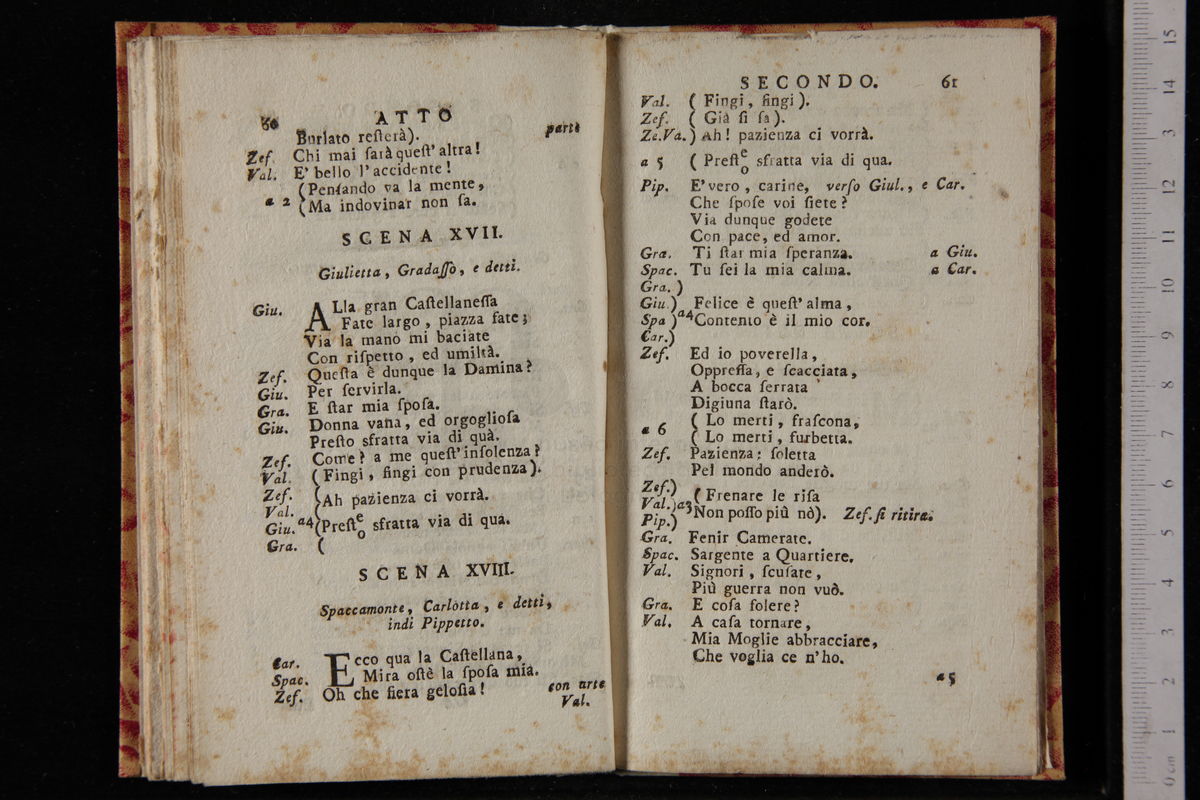 60 ATTO
Burlato reſterà). parte
Zef. Chi mai ſarà queſt' altra!
Val. E' bello l'accidente!
(Penſando va la mente,
a 2 (Ma indovinar non ſa.
SCENA XVII.
Giulietta, Gradaſſo, e detti.
Giu. ALla gran Caſtellaneſſa
Fate largo, piazza fate;
Via la mano mi baciate
Con riſpetto, ed umiltà.
Zef. Queſta è dunque la Damina?
Giu. Per ſervirla.
Gra. E ſtar mia ſpoſa.
Giu. Donna vana, ed orgoglioſa
Preſto sfratta via di quà.
Zef. Come? a me queſt' inſolenza?
Val. (Fingi, fingi con prudenza).
Zef. (Ah pazienza ci vorrà.
Val.
Giu. a4 (Preſte/o sfratta via di qua.
Gra. (
SCENA XVIII.
Spaccamonte, Carlotta, e detti,
indi Pippetto.
Car. Ecco qua la Caſtellana,
Spac. Mira oſtè la ſpoſa mia.
Zef. Oh che fiera geloſia! con arte
Val.
SECONDO. 61
Val. ( Fingi, fingi).
Zef. ( Già ſi ſa).
Ze.Va.) Ah! pazienza ci vorrà.
a 5 (Preſte/o sfratta via di qua.
Pip. E' vero, carine, verſo Giul., e Car.
Che ſpoſe voi ſiete?
Via dunque godete
Con pace, ed amor.
Gra. Ti ſtar mia ſperanza. a Giu.
Spac. Tu ſei la mia calma. a Car.
Gra. )
Giu.) Felice è queſt' alma,
Spa )a4 Contento è il mio cor.
Car.)
Zef. Ed io poverella,
Oppreſſa, e ſcacciata,
A bocca ſerrata
Digiuna ſtarò.
( Lo merti, fraſcona,
a 6 ( Lo merti, furbetta.
Zef. Pazienza: ſoletta
Pel mondo anderò.
Zef.)
Val.)a3 (Frenare le riſa
Pip.) Non poſſo più nò). Zef. ſi ritira.
Gra. Fenir Camerate.
Spac. Sargente a Quartiere.
Val. Signori, ſcuſate,
Più guerra non vuò.
Gra. E coſa folere?
Val. A caſa tornare,
Mia Moglie abbracciare,
Che voglia ce n'ho.
a 5
15
14
13
12
11
10
9
8
7
6
5
4
3
2
1
0 cm